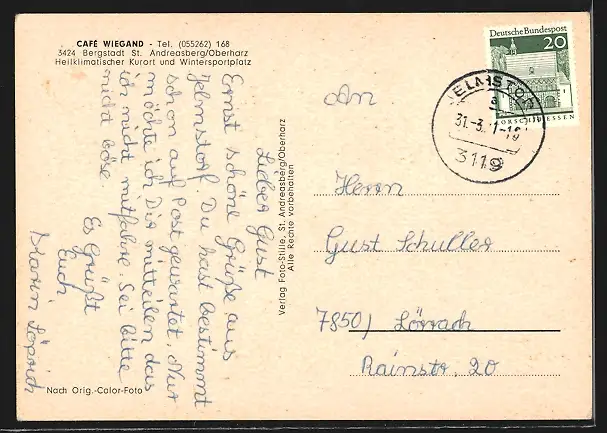 CAFÉ WIEGAND - Tel. (055262) 168
3424 Bergstadt St. Andreasberg/Oberharz
Heilklimatischer Kurort und Wintersportplatz
Lieber Gust
Ernst schöne Grüße aus
Jelmstorf. Du hast bestimmt
schon auf Post gewartet. Nur
möchte ich Dir mitteilen das
ich nicht mitfahre. Sei bitte
nicht böse
Es Grüßt
Euch
Karin
Nach Orig.-Color-Foto
Verlag Foto-Stille, St. Andreasberg/Oberharz
Alle Rechte vorbehalten
Deutsche Bundespost
20
LORSCH/HESSEN
JELMSTORF
a
31.-3.
3119
An
Herrn
Gust Schuller
7850) Lörrach
Rainstr. 20